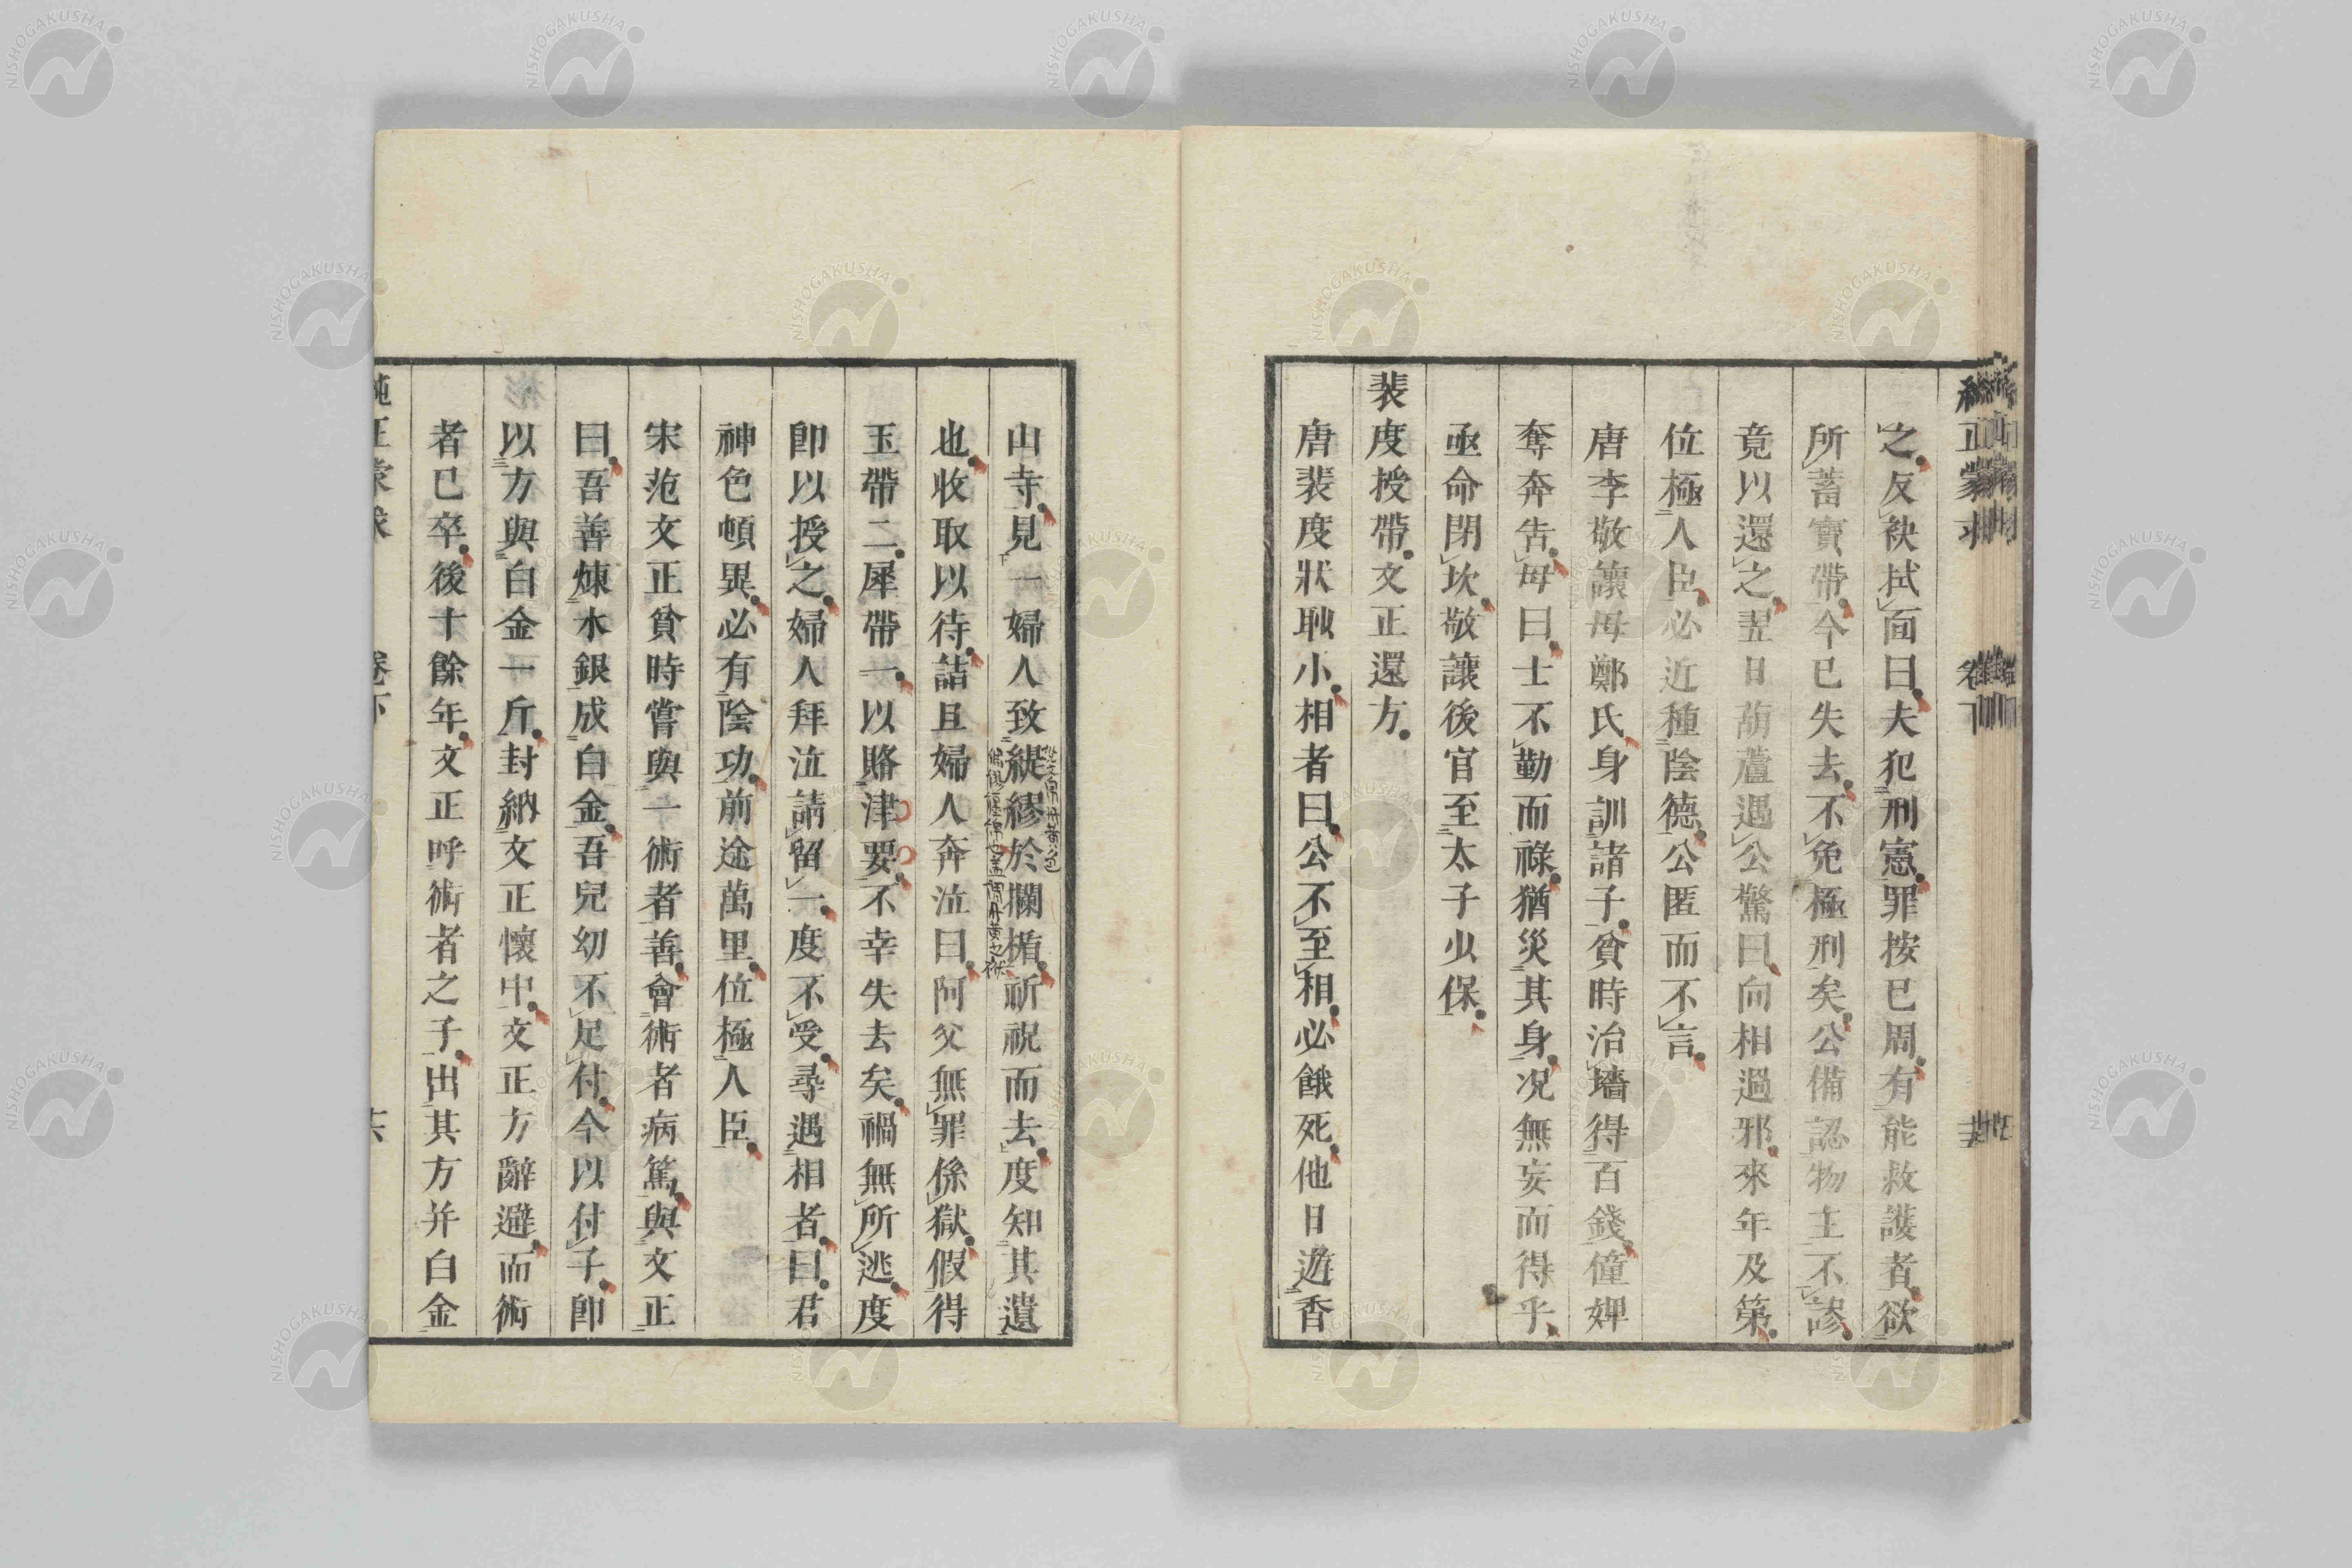 之反袂拭面曰夫犯刑憲罪按已周有能救護者欲
所蓄寳帶今已失去不免極刑矣公備認物主不謬
竟以還之翌日葫蘆遇公驚曰向相過邪來年及第
位極人臣必近種陰德公匿而不言
唐李敬讓母鄭氏身訓諸子貧時治墻得百錢僮婢
奪奔告母曰士不勤而祿猶災其身况無妄而得乎
亟命閉坎敬讓後官至太子少保
裴度授帶文正還方
唐裴度狀眇小相者曰公不至相必餓死他日遊香
山寺見一婦人致緹繆於欄楯祈祝而去度知其遺
也收取以待詰旦婦人奔泣曰阿父無罪係獄假得
玉帶二犀帶一以賂津要不幸失去矣禍無所逃度
卽以授之婦人拜泣請留一度不受尋遇相者曰君
神色頓異必有陰功前途萬里位極人臣
宋范文正貧時嘗與一術者善會術者病篤與文正
曰吾善煉水銀成白金吾兒幼不足付今以付子卽
以方與白金一斤封納文正懷中文正方辭避而術
者已卒後十餘年文正呼術者之子出其方并白金
純正蒙求 卷下 六
NISHOGAKUSHA